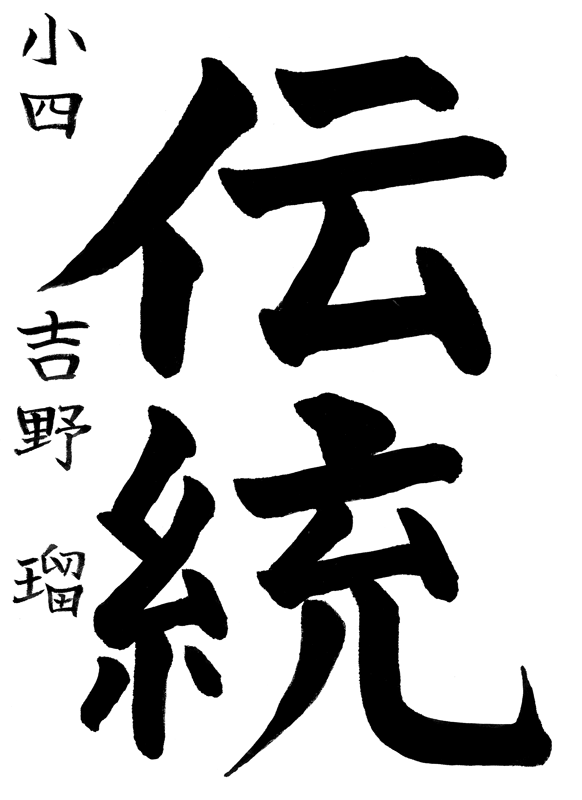 伝統
小四 吉野 瑠